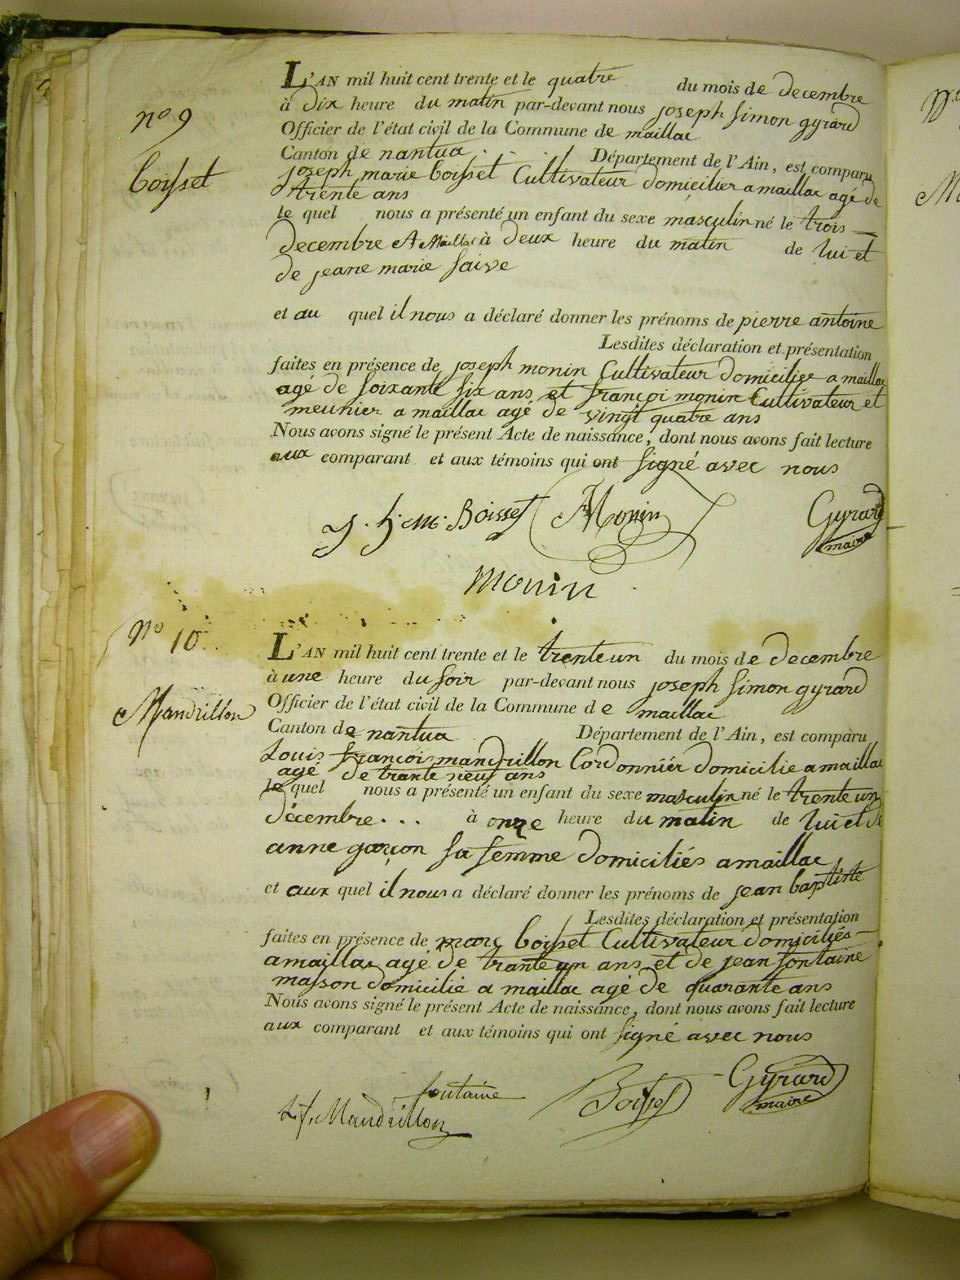 no. 9
Boisset
L'AN mil huit cent trente et le quatre du mois de decembre
à dix heure du matin par-devant nous joseph simon gyrard
Officier de l'état civil de la Commune de maillac
Canton de nantua . . . Département de l'Ain, est comparu
joseph marie boisset Cultivateur domicilier a maillac agé de
trente ans
le quel nous a présenté un enfant du sexe masculin né le trois
decembre A Maillac à deux heure du matin de lui et
de jeane marie saive
et au quel il nous a déclaré donner les prénoms de pierre antoine
Lesdites déclaration et présentation
faites en présence de joseph monin Cultivateur domicilize a maillac
agé de soixante six ans et françoi monin Cultivateur et
meunier a maillac agé de vingt quatre ans
Nous avons signé le présent Acte de naissance, dont nous avons fait lecture
aux comparant et aux témoins qui ont signé avec nous
Boisset Monin Gyrard
maire
monin
No 10
Mandrillon
L'AN mil huit cent trente et le trente un du mois de decembre
à une heure du soir par-devant nous joseph simon gyrard
Officier de l'état civil de la Commune de maillac
Canton de nantua Département de l'Ain, est comparu
Louis françois mandrillon Cordonniér domicilie a maillac
agé de trante neuf ans
le quel nous a présenté un enfant du sexe masculin né le trente un
décembre . . . à onze heure du matin de lui et de
anne garçon sa femme domiciliés a maillac
et aux quel il nous a déclaré donner les prénoms de jean baptiste
Lesdites déclaration et présentation
faites en présence de marc boisset Cultivateur domiciliés
a maillac agé de trante un ans et de jean fontaine
masson domicilié a maillac agé de quarante ans
Nous avons signé le présent Acte de naissance, dont nous avons fait lecture
aux comparant et aux témoins qui ont signé avec nous
fontaine Boisset Gyrard
L. f. Mandrillon maire